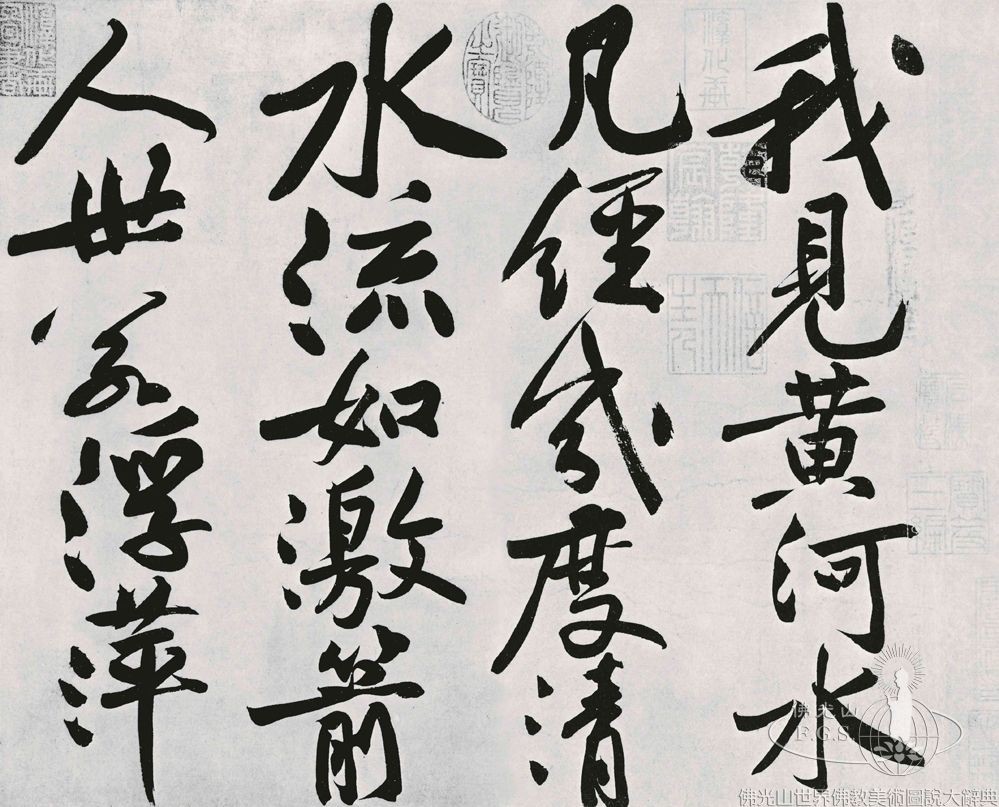 我見黃河水
凡經幾度清
水流如激箭
人世若浮萍
佛光山
F.G.S.
佛光山世界佛教美術圖說大辭典